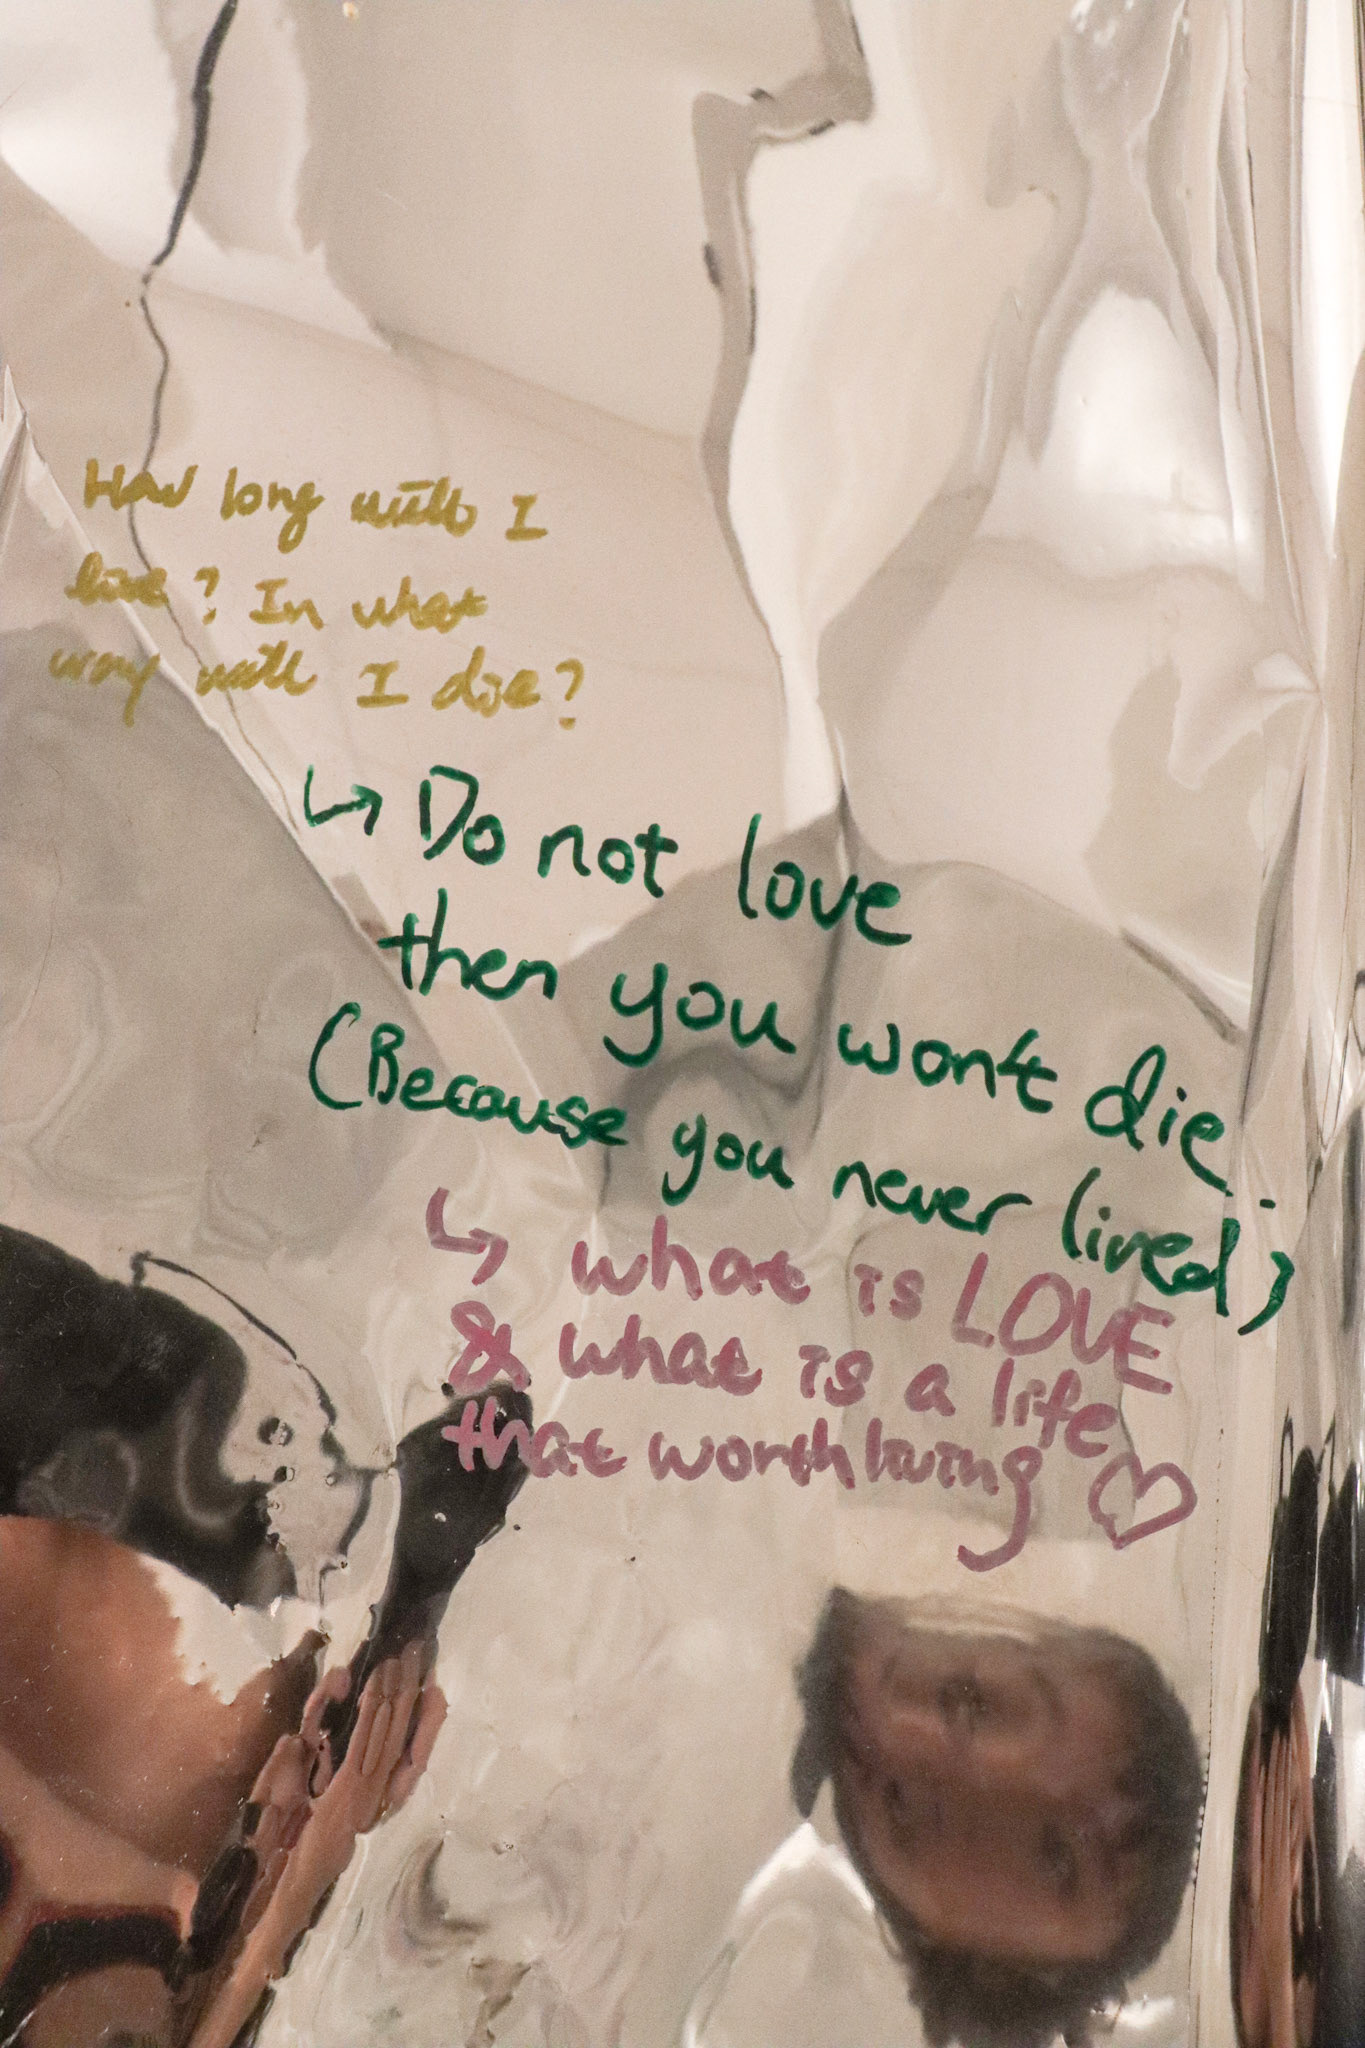 How long will I
live? In what
way will I die?
↳ Do not love
then you won't die.
(Because you never lived)
↳ what is LOVE
& what is a life
that worth living ♡